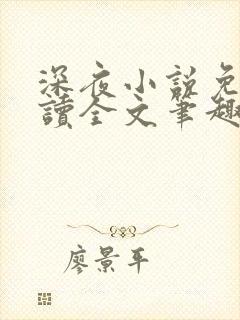 深夜小説免
讀全文筆趣
廖景平